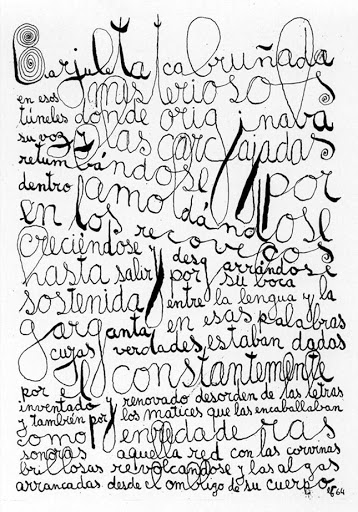 Barjuleta cabruñada
y misteriosos
en esos
túneles donde originaba
su voz y las carcajadas
retumbándose por
dentro amoldándose
en los recovecos
creciéndose y desgarrándose
hasta salir por su boca
sostenida entre la lengua y la
garganta en esas palabras
cuyas verdades estaban dadas
por el constantemente
inventado y renovado desorden de las letras
y también por los matices que las encaballaban
como enredaderas
sonoras aquella red con las corvinas
brillosas revolcándose y las algas
arrancadas desde el ombligo de su cuerpo
64